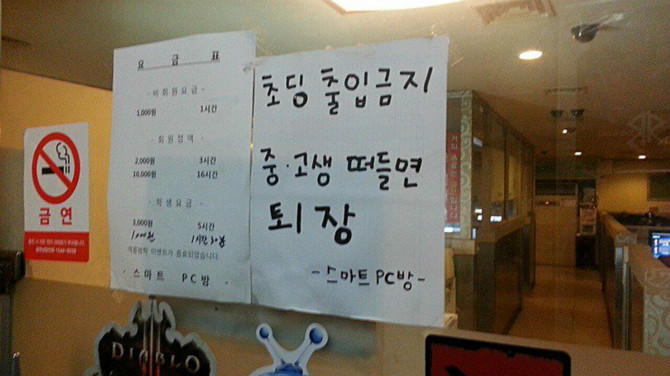 요 금 표
- 비 회 원 요 금 -
1,000원 1시간
- 회 원 정 액 -
2,000원 3시간
10,000원 16시간
- 학 생 요 금 -
3,000원 5시간
1,000원 1시간30분
여름방학 이벤트가 종료되었습니다
- 스 마 트 PC 방 -
초딩 출입금지
중·고생 떠들면
퇴장
-스마트PC방-
금 연
DIABLO